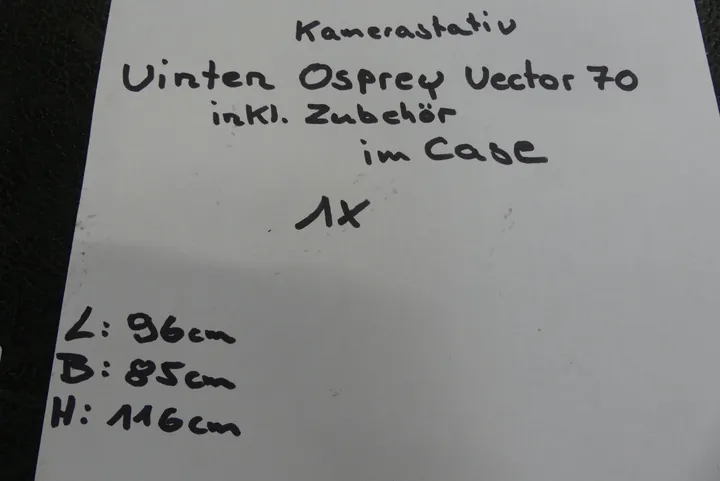 Kamerastativ
Vinten Osprey Vector 70
inkl. Zubehör
im Case
1x
L: 96cm
B: 85cm
H: 116cm